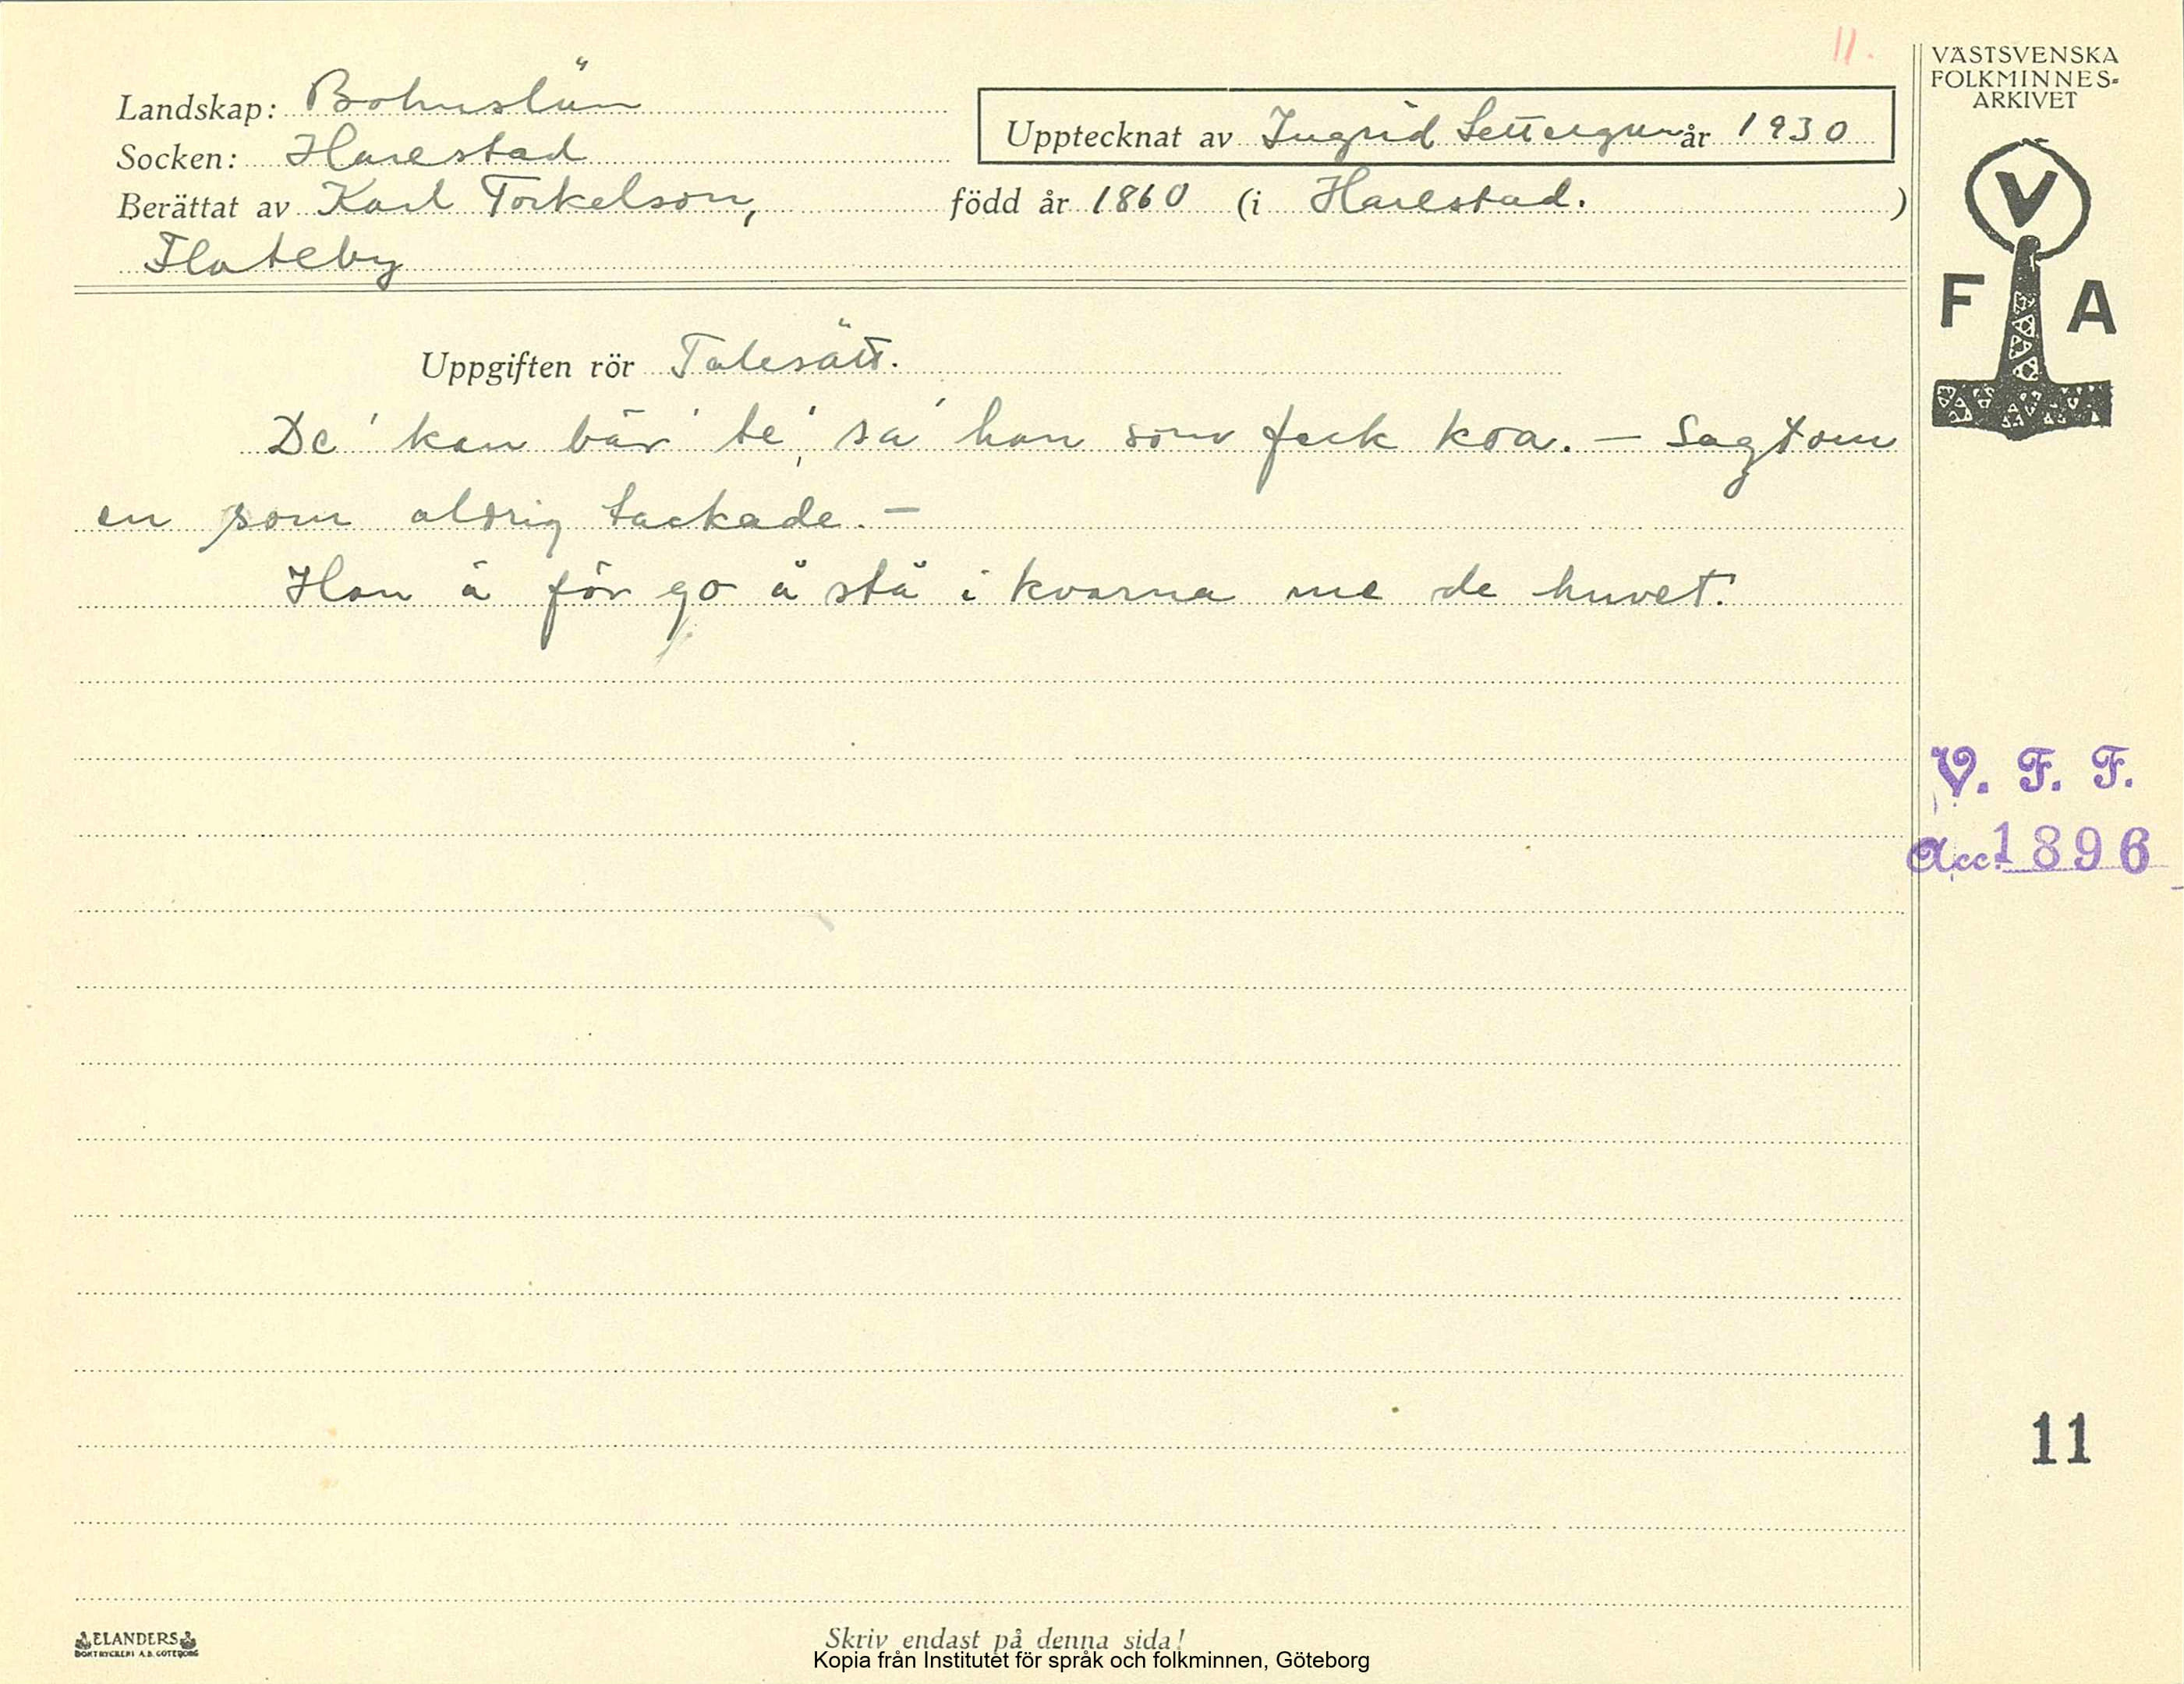 11.
VÄSTSVENSKA
FOLKMINNES-
ARKIVET
Landskap: Bohuslän
Upptecknat av Ingrid Settergren år 1930
Socken: Harestad
Berättat av Karl Torkelson, född år 1860 (i Harestad. )
Flateby
V
F A
Uppgiften rör Talesätt.
De' kan bär' te', sa' han som feck koa. – Sagt om
en som aldrig tackade. –
Han ä för go å stå i kvarna me de huvet!
V. F. F.
Acc. 1896
11
ELANDERS
BOKTRYCKERI A.B. GÖTEBORG
Skriv endast på denna sida!
Kopia från Institutet för språk och folkminnen, Göteborg